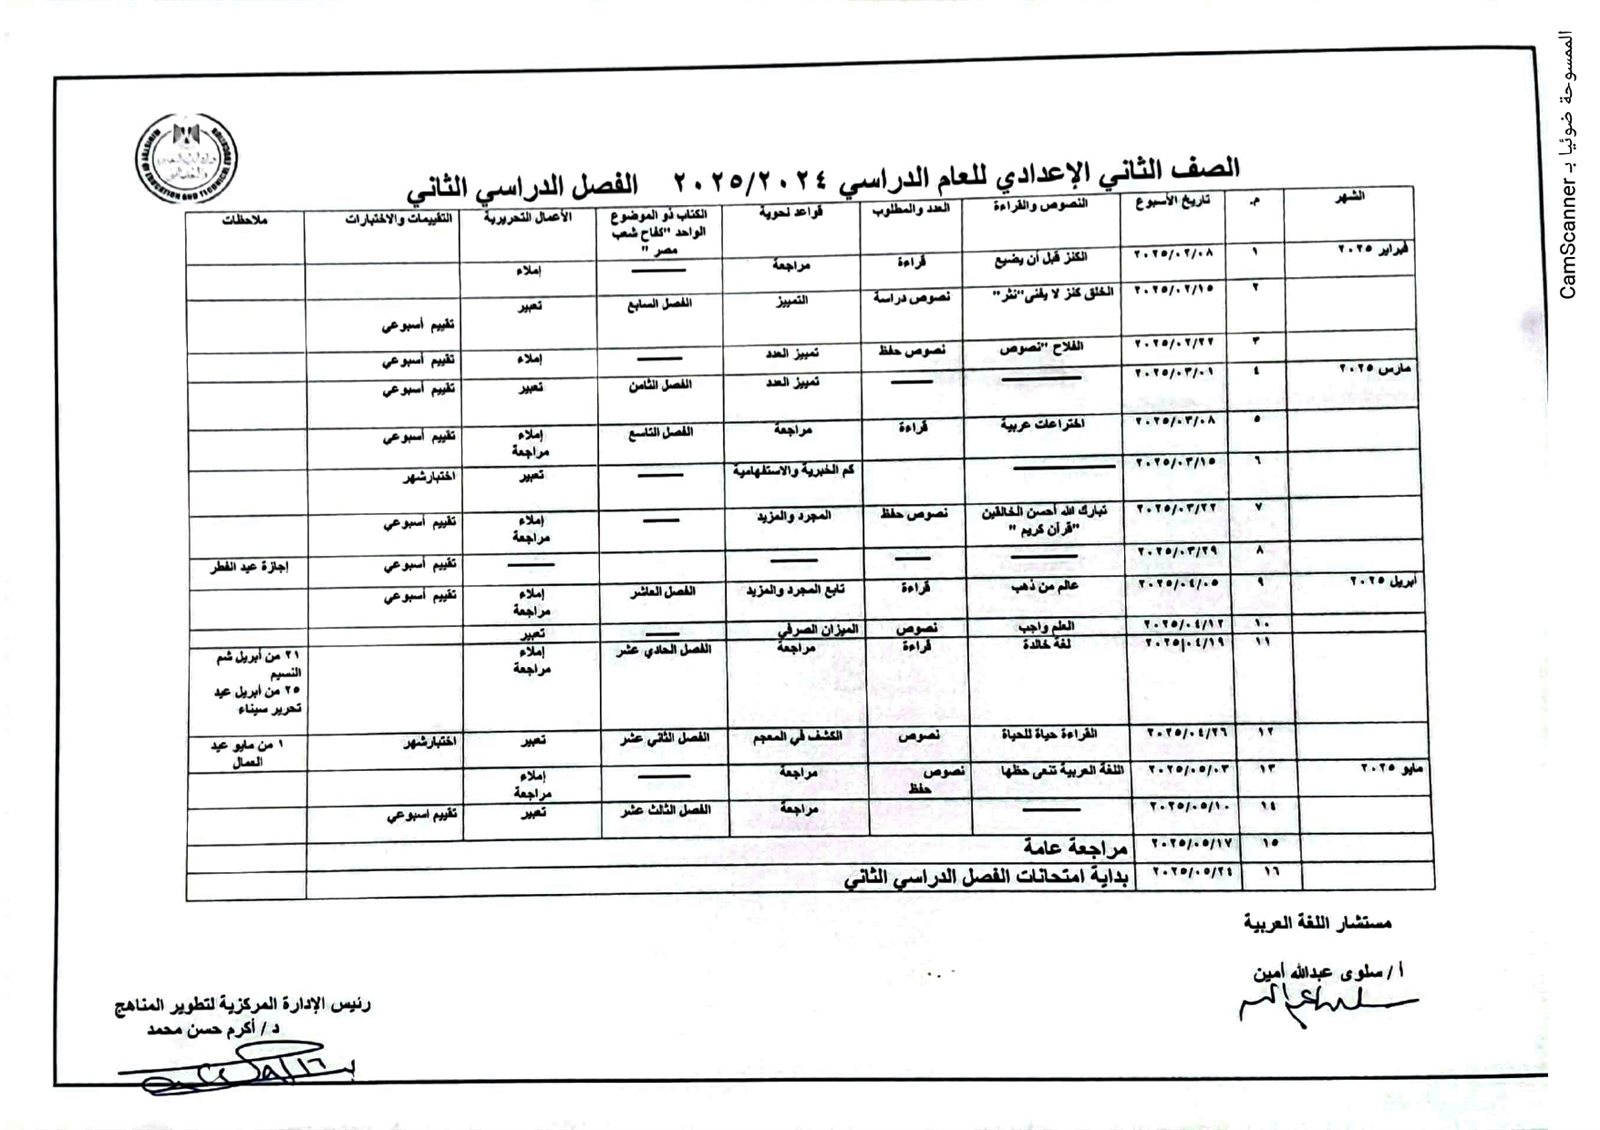 الممسوحة ضوئيا بـ CamScanner
الصف الثاني الإعدادي للعام الدراسي ٢٠٢٥/٢٠٢٤ الفصل الدراسي الثاني
الشهر م. تاريخ الأسبوع النصوص والقراءة العدد والمطلوب قواعد نحوية الكتاب ذو الموضوع الواحد "كفاح شعب مصر" الأعمال التحريرية التقييمات والاختبارات ملاحظات
فبراير ٢٠٢٥ ١ ٢٠٢٥/٠٢/٠٨ الكنز قبل أن يضيع قراءة مراجعة إملاء
٢ ٢٠٢٥/٠٢/١٥ الخلق كنز لا يفنى"نثر" نصوص دراسة التمييز الفصل السابع تعبير تقييم أسبوعي
٣ ٢٠٢٥/٠٢/٢٢ الفلاح "نصوص نصوص حفظ تمييز العدد إملاء تقييم أسبوعي
مارس ٢٠٢٥ ٤ ٢٠٢٥/٠٣/٠١ تمييز العدد الفصل الثامن تعبير تقييم أسبوعي
٥ ٢٠٢٥/٠٣/٠٨ اختراعات عربية قراءة مراجعة الفصل التاسع إملاء مراجعة تقييم أسبوعي
٦ ٢٠٢٥/٠٣/١٥ كم الخبرية والاستفهامية تعبير اختبارشهر
٧ ٢٠٢٥/٠٣/٢٢ تبارك الله أحسن الخالقين "قرآن كريم " نصوص حفظ المجرد والمزيد إملاء مراجعة تقييم أسبوعي
٨ ٢٠٢٥/٠٣/٢٩ تقييم أسبوعي إجازة عيد الفطر
أبريل ٢٠٢٥ ٩ ٢٠٢٥/٠٤/٠٥ عالم من ذهب قراءة تابع المجرد والمزيد الفصل العاشر إملاء مراجعة تقييم أسبوعي
١٠ ٢٠٢٥/٠٤/١٢ العلم واجب نصوص الميزان الصرفي تعبير
١١ ٢٠٢٥/٠٤/١٩ لغة خالدة قراءة مراجعة الفصل الحادي عشر إملاء مراجعة ٢١ من أبريل شم النسيم ٢٥ من أبريل عيد تحرير سيناء
١٢ ٢٠٢٥/٠٤/٢٦ القراءة حياة للحياة نصوص الكشف في المعجم الفصل الثاني عشر تعبير اختبارشهر ١ من مايو عيد العمال
مايو ٢٠٢٥ ١٣ ٢٠٢٥/٠٥/٠٣ اللغة العربية تنعى حظها نصوص حفظ مراجعة إملاء مراجعة
١٤ ٢٠٢٥/٠٥/١٠ مراجعة الفصل الثالث عشر تعبير تقييم اسبوعي
١٥ ٢٠٢٥/٠٥/١٧ مراجعة عامة
١٦ ٢٠٢٥/٠٥/٢٤ بداية امتحانات الفصل الدراسي الثاني
مستشار اللغة العربية
أ / سلوى عبدالله أمين
رئيس الإدارة المركزية لتطوير المناهج
د / أكرم حسن محمد